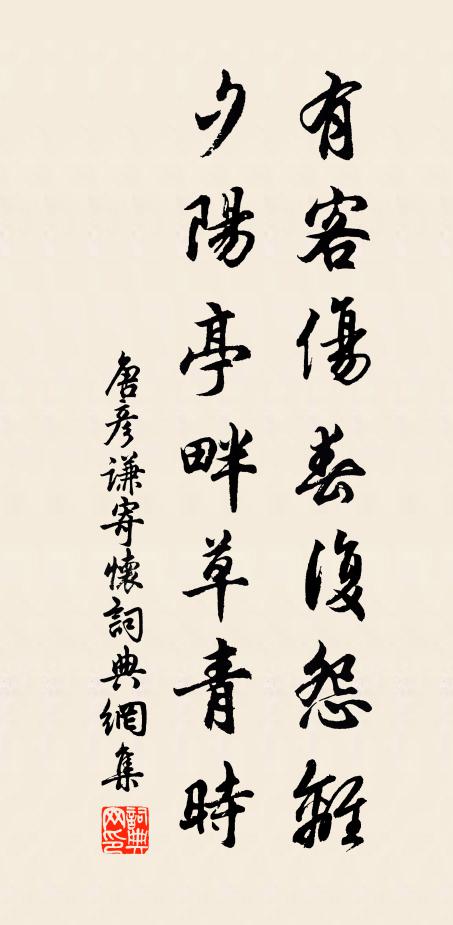 有客傷春復怨離
夕陽亭畔草青時
唐彥謙寄懷詞典網集
詞典網印